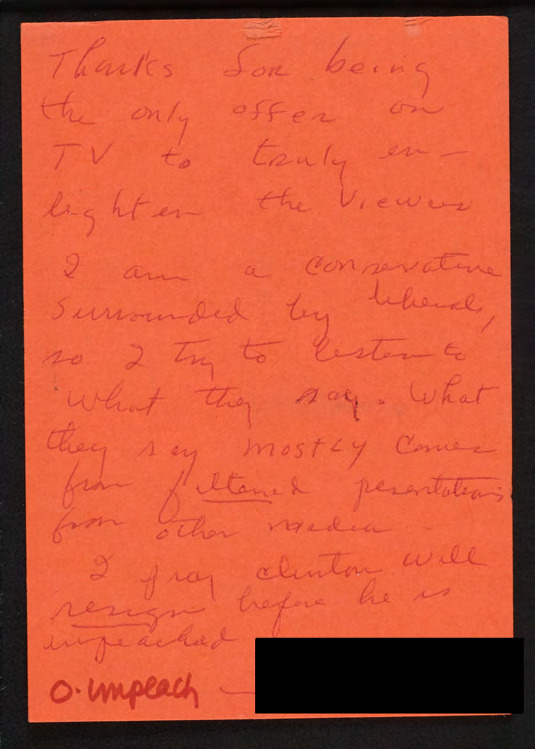 Thanks for being
the only offer on
TV to truly en-
lighten the Viewers
I am a conservative
Surrounded by liberals,
so I try to listen to
What they say. What
they say mostly comes
from filtered presentations
from other media
I pray clinton will
resign before he is
impeached
O. impeach -